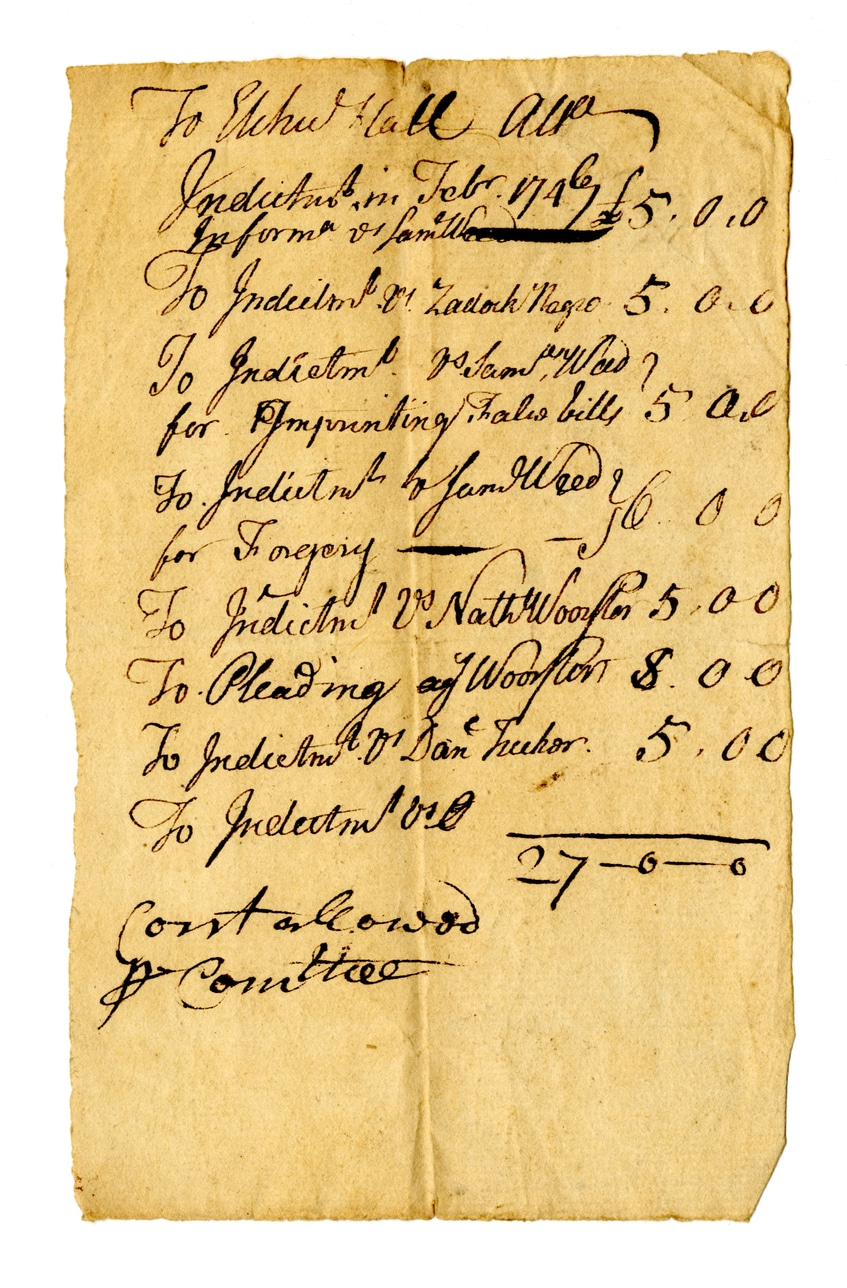 To Elihu Hall Atto
Indictmt in Febr. 1746/7 £5. 0. 0
Informa vs Saml Weed
To Indictmt. vs. Zadock Negro 5. 0. 0
To Indictmt. vs Saml Weed
for Imprinting False bills 5 0. 0
To. Indictmt v Saml Weed
for Forgery — 6. 0 0
To Indictmt vs Nathl Woorster 5. 0 0
To. Pleading agt Woorster 8. 0 0
To Indictmt. vs Danl Tucker. 5. 0 0
To Indictmt vs
27—0—0
Cont allowed
pr Comttee